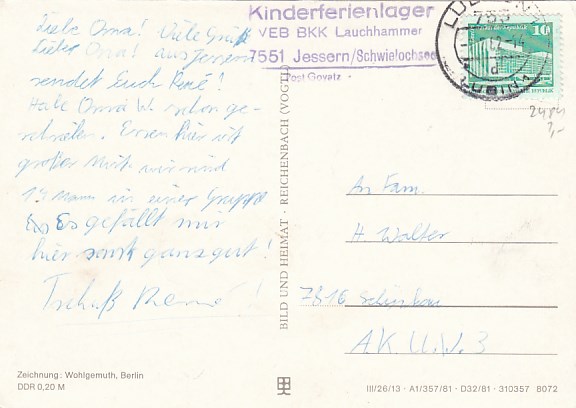 Liebe Oma! Viele Grüße
Liebe Oma! aus Jessern
sendet Euch René!
Habe Oma W. schon ge-
schrieben. Essen hier ist
großer Mist. wir sind
14 Mann in einer Gruppe
Es gefällt mir
hier sonst ganz gut!
Tschüß René!
Kinderferienlager
VEB BKK Lauchhammer
7551 Jessern/Schwielochsee
Post Goyatz
LÜBBEN
755
LUBIN
10
BILD UND HEIMAT · REICHENBACH (VOGTL)
2484
An Fam.
H. Walter
7816 Schipkau
A.K.U.W. 3
Zeichnung: Wohlgemuth, Berlin
DDR 0,20 M
III/26/13 · A1/357/81 · D32/81 · 310357 8072